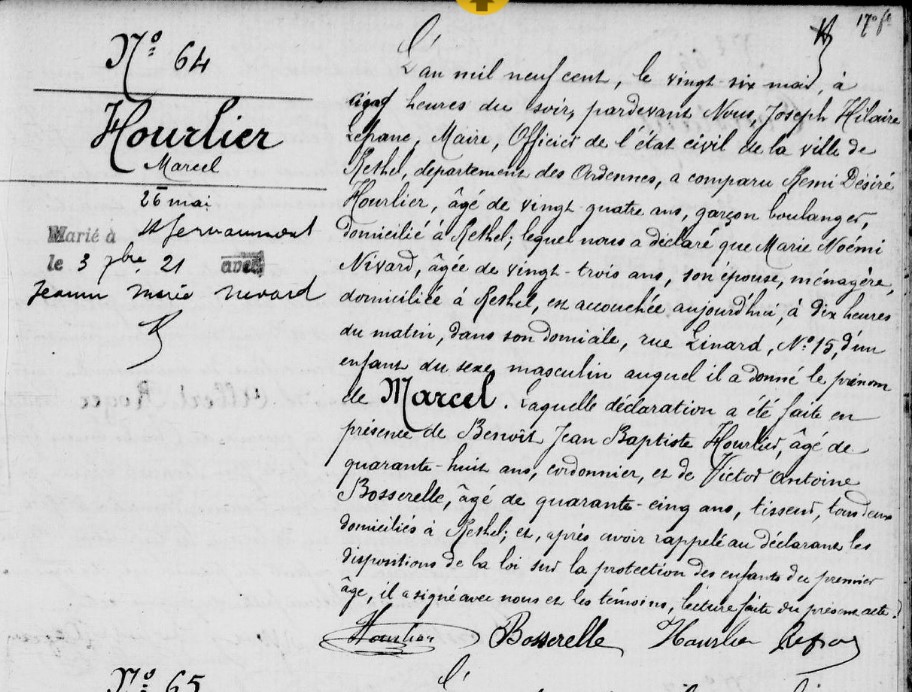 17º ft
Nº 64
Hourlier
Marcel
26 mai
Marié à St Fervaumont
le 3 7bre 21 avec
Jeanne Marie Nivard
L'an mil neuf cent, le vingt-six mai, à
heures du soir, pardevant Nous, Joseph Hilaire
Maire, Officier de l'état civil de la ville de
Rethel, département des Ardennes, a comparu Remi Désiré
Hourlier, âgé de vingt-quatre ans, garçon boulanger,
domicilié à Rethel; lequel nous a déclaré que Marie Noémi
Nivard, âgée de vingt-trois ans, son épouse, ménagère,
domiciliée à Rethel, est accouchée aujourd'hui, à dix heures
du matin, dans son domicile, rue Linard, Nº 15, d'un
enfant du sexe masculin auquel il a donné le prénom
de Marcel. Laquelle déclaration a été faite en
présence de Benoît Jean Baptiste Hourlier, âgé de
quarante-huit ans, cordonnier, et de Victor Antoine
Bosserelle, âgé de quarante-cinq ans, tisseur, tous deux
domiciliés à Rethel; et, après avoir rappelé au déclarant les
dispositions de la loi sur la protection des enfants du premier
âge, il a signé avec nous et les témoins, lecture faite du présent acte.
Hourlier Bosserelle Hourlier
Nº 65